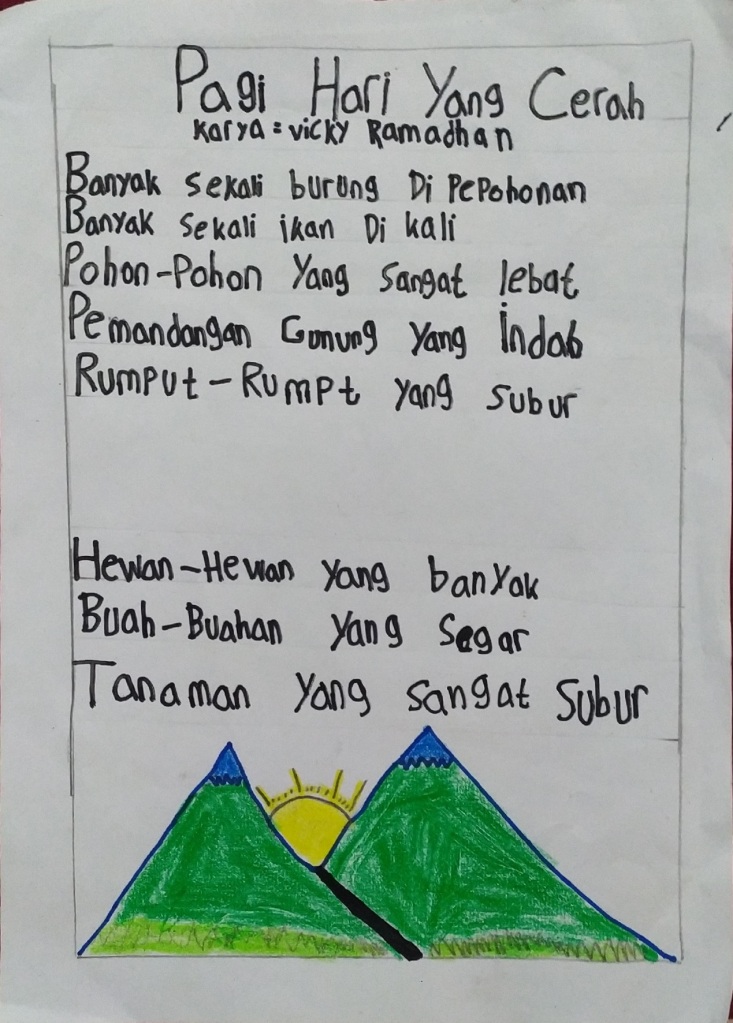 Pagi Hari Yang Cerah
Karya = Vicky Ramadhan
Banyak Sekali burung Di Pepohonan
Banyak Sekali ikan Di kali
Pohon-Pohon Yang Sangat lebat
Pemandangan Gunung Yang indah
Rumput-Rumpt yang subur
Hewan-Hewan Yang banyak
Buah-Buahan Yang Segar
Tanaman Yang Sangat Subur